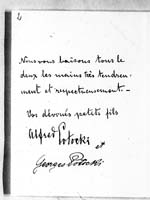 2
Nous vous baisons tous le
deux les mains très tendre-
ment et respectueusement. —
Vos dévoués petits fils
Alfred Potocki et
Georges Potocki